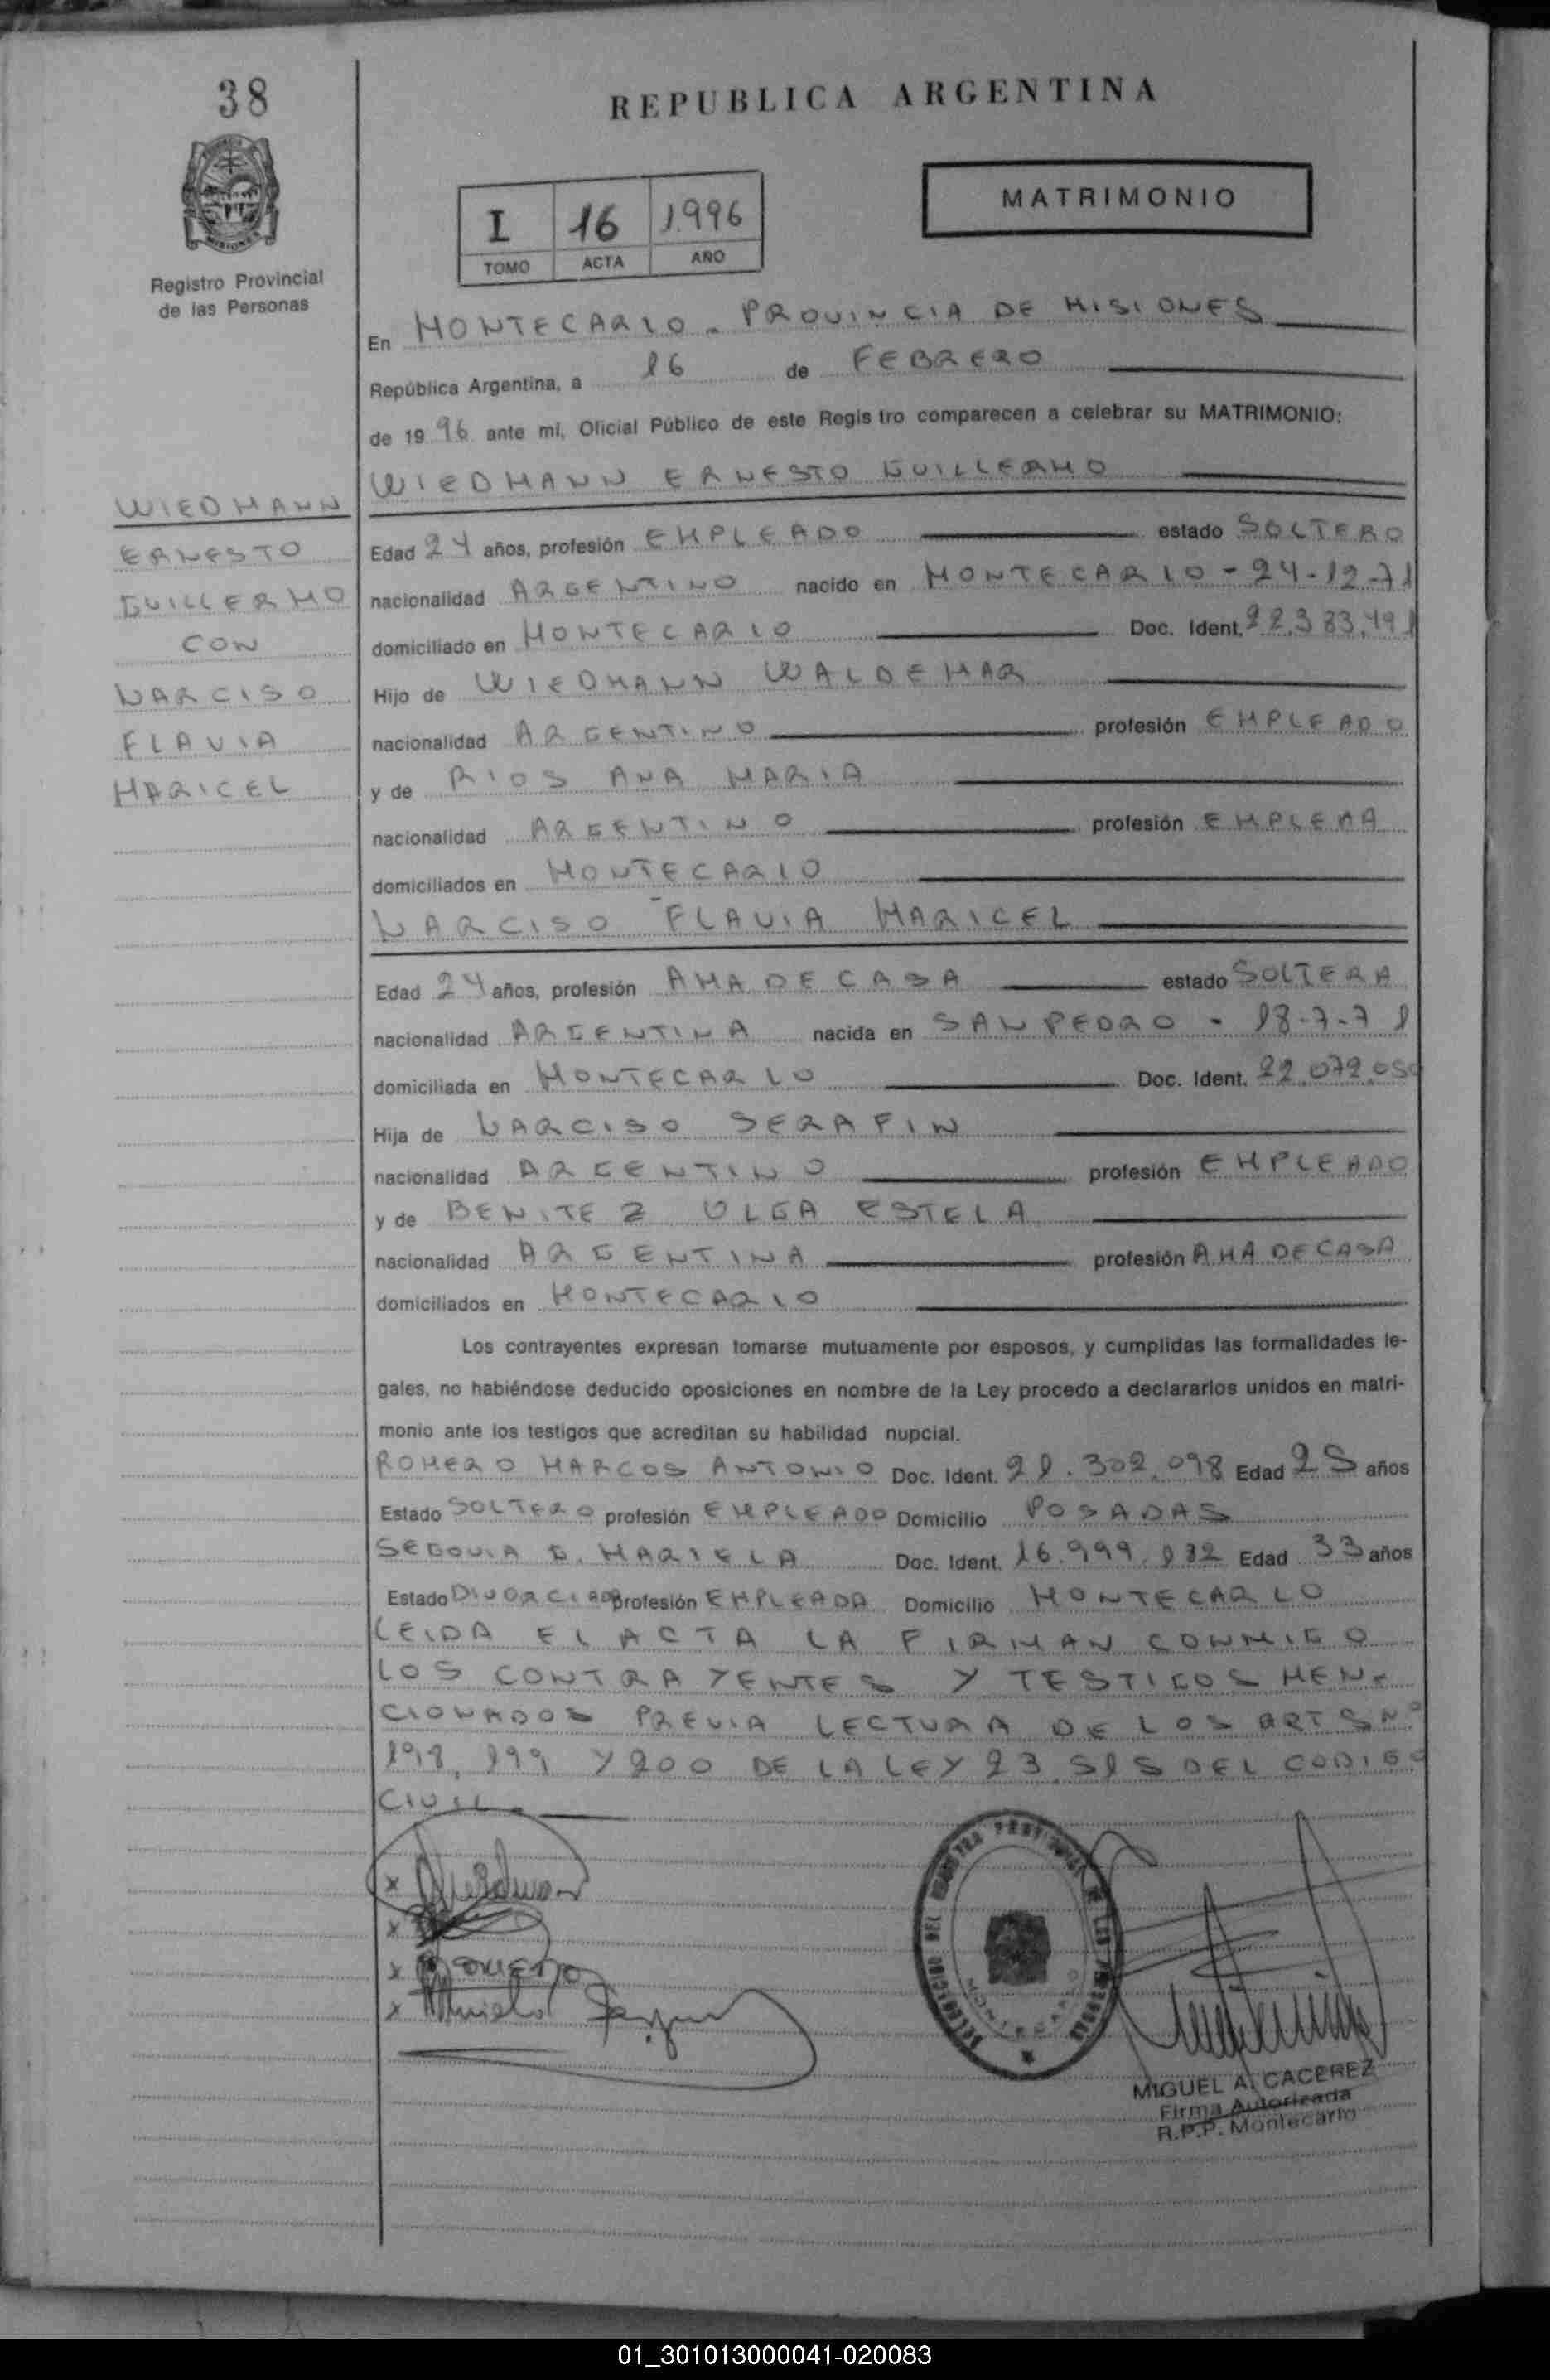 38
REPUBLICA ARGENTINA
MATRIMONIO
I 16 1996
TOMO ACTA AÑO
Registro Provincial
de las Personas
En MONTECARLO - PROVINCIA DE MISIONES
República Argentina, a 16 de FEBRERO
de 1996 ante mí, Oficial Público de este Registro comparecen a celebrar su MATRIMONIO:
WIEDMANN ERNESTO GUILLERMO
WIEDMANN
ERNESTO
GUILLERMO
CON
NARCISO
FLAVIA
MARICEL
Edad 24 años, profesión EMPLEADO estado SOLTERO
nacionalidad ARGENTINO nacido en MONTECARLO - 24-12-71
domiciliado en MONTECARLO Doc. Ident. 22.383.491
Hijo de WIEDMANN WALDEMAR
nacionalidad ARGENTINO profesión EMPLEADO
y de RIOS ANA MARIA
nacionalidad ARGENTINO profesión EMPLEADA
domiciliados en MONTECARLO
NARCISO FLAVIA MARICEL
Edad 24 años, profesión AMA DE CASA estado SOLTERA
nacionalidad ARGENTINA nacida en SAN PEDRO - 18-7-71
domiciliada en MONTECARLO Doc. Ident.
Hija de NARCISO SERAFIN
nacionalidad ARGENTINO profesión EMPLEADO
y de BENITEZ OLGA ESTELA
nacionalidad ARGENTINA profesión AMA DE CASA
domiciliados en MONTECARLO
Los contrayentes expresan tomarse mutuamente por esposos, y cumplidas las formalidades le-
gales, no habiéndose deducido oposiciones en nombre de la Ley procedo a declararlos unidos en matri-
monio ante los testigos que acreditan su habilidad nupcial.
ROMERO MARCOS ANTONIO Doc. Ident. 21.302.098 Edad 25 años
Estado SOLTERO profesión EMPLEADO Domicilio POSADAS
SEGOVIA G. MARIELA Doc. Ident. 16.999.132 Edad 33 años
Estado DIVORCIADA profesión EMPLEADA Domicilio MONTECARLO
LEIDA EL ACTA LA FIRMAN CONMIGO
LOS CONTRAYENTES Y TESTIGOS MEN-
CIONADOS PREVIA LECTURA DE LOS ARTS Nº
198, 199 Y 200 DE LA LEY 23.515 DEL CODIGO
CIVIL.
MIGUEL A. CACEREZ
Firma Autorizada
R.P.P. Montecarlo
01_301013000041-020083